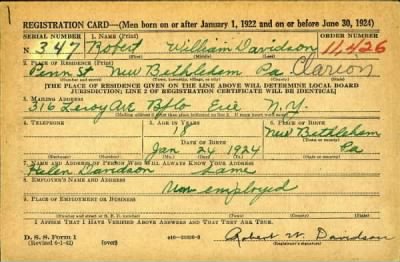 REGISTRATION CARD—(Men born on or after January 1, 1922 and on or before June 30, 1924)
SERIAL NUMBER 1. NAME (Print) ORDER NUMBER
N. 347 Robert William Davidson 11,426
(First) (Middle) (Last)
2. PLACE OF RESIDENCE (Print)
Penn St New Bethlehem Pa Clarion
(Number and street) (Town, township, village, or city) (County) (State)
[THE PLACE OF RESIDENCE GIVEN ON THE LINE ABOVE WILL DETERMINE LOCAL BOARD
JURISDICTION; LINE 2 OF REGISTRATION CERTIFICATE WILL BE IDENTICAL]
3. MAILING ADDRESS
316 Leroy Ave Bflo Erie N.Y.
4. TELEPHONE 5. AGE IN YEARS 6. PLACE OF BIRTH
18 New Bethleham
DATE OF BIRTH
Jan 24 1924 Pa
(Mo.) (Day) (Yr.)
7. NAME AND ADDRESS OF PERSON WHO WILL ALWAYS KNOW YOUR ADDRESS
Helen Davidson Same
8. EMPLOYER'S NAME AND ADDRESS
Un employed
9. PLACE OF EMPLOYMENT OR BUSINESS
(Number and street or R. F. D. number) (Town) (County) (State)
I AFFIRM THAT I HAVE VERIFIED ABOVE ANSWERS AND THAT THEY ARE TRUE.
D. S. S. Form 1
(Revised 6-1-42) (over) Robert W. Davidson